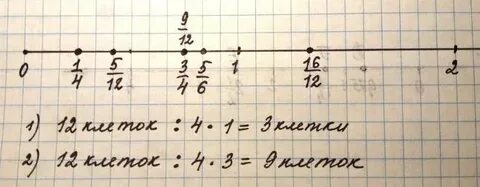 9/12
0 1/4 5/12 3/4 5/6 1 16/12 2
1) 12 клеток : 4 · 1 = 3 клетки
2) 12 клеток : 4 · 3 = 9 клеток